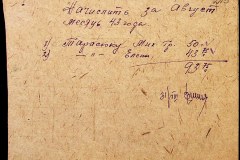 Начислить за Август
месяць 43 года
1) Тарасюку Мих Гр. 50
2) —"— Елена 43 75
93 75